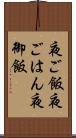 夜ご飯夜
ごはん夜
御飯